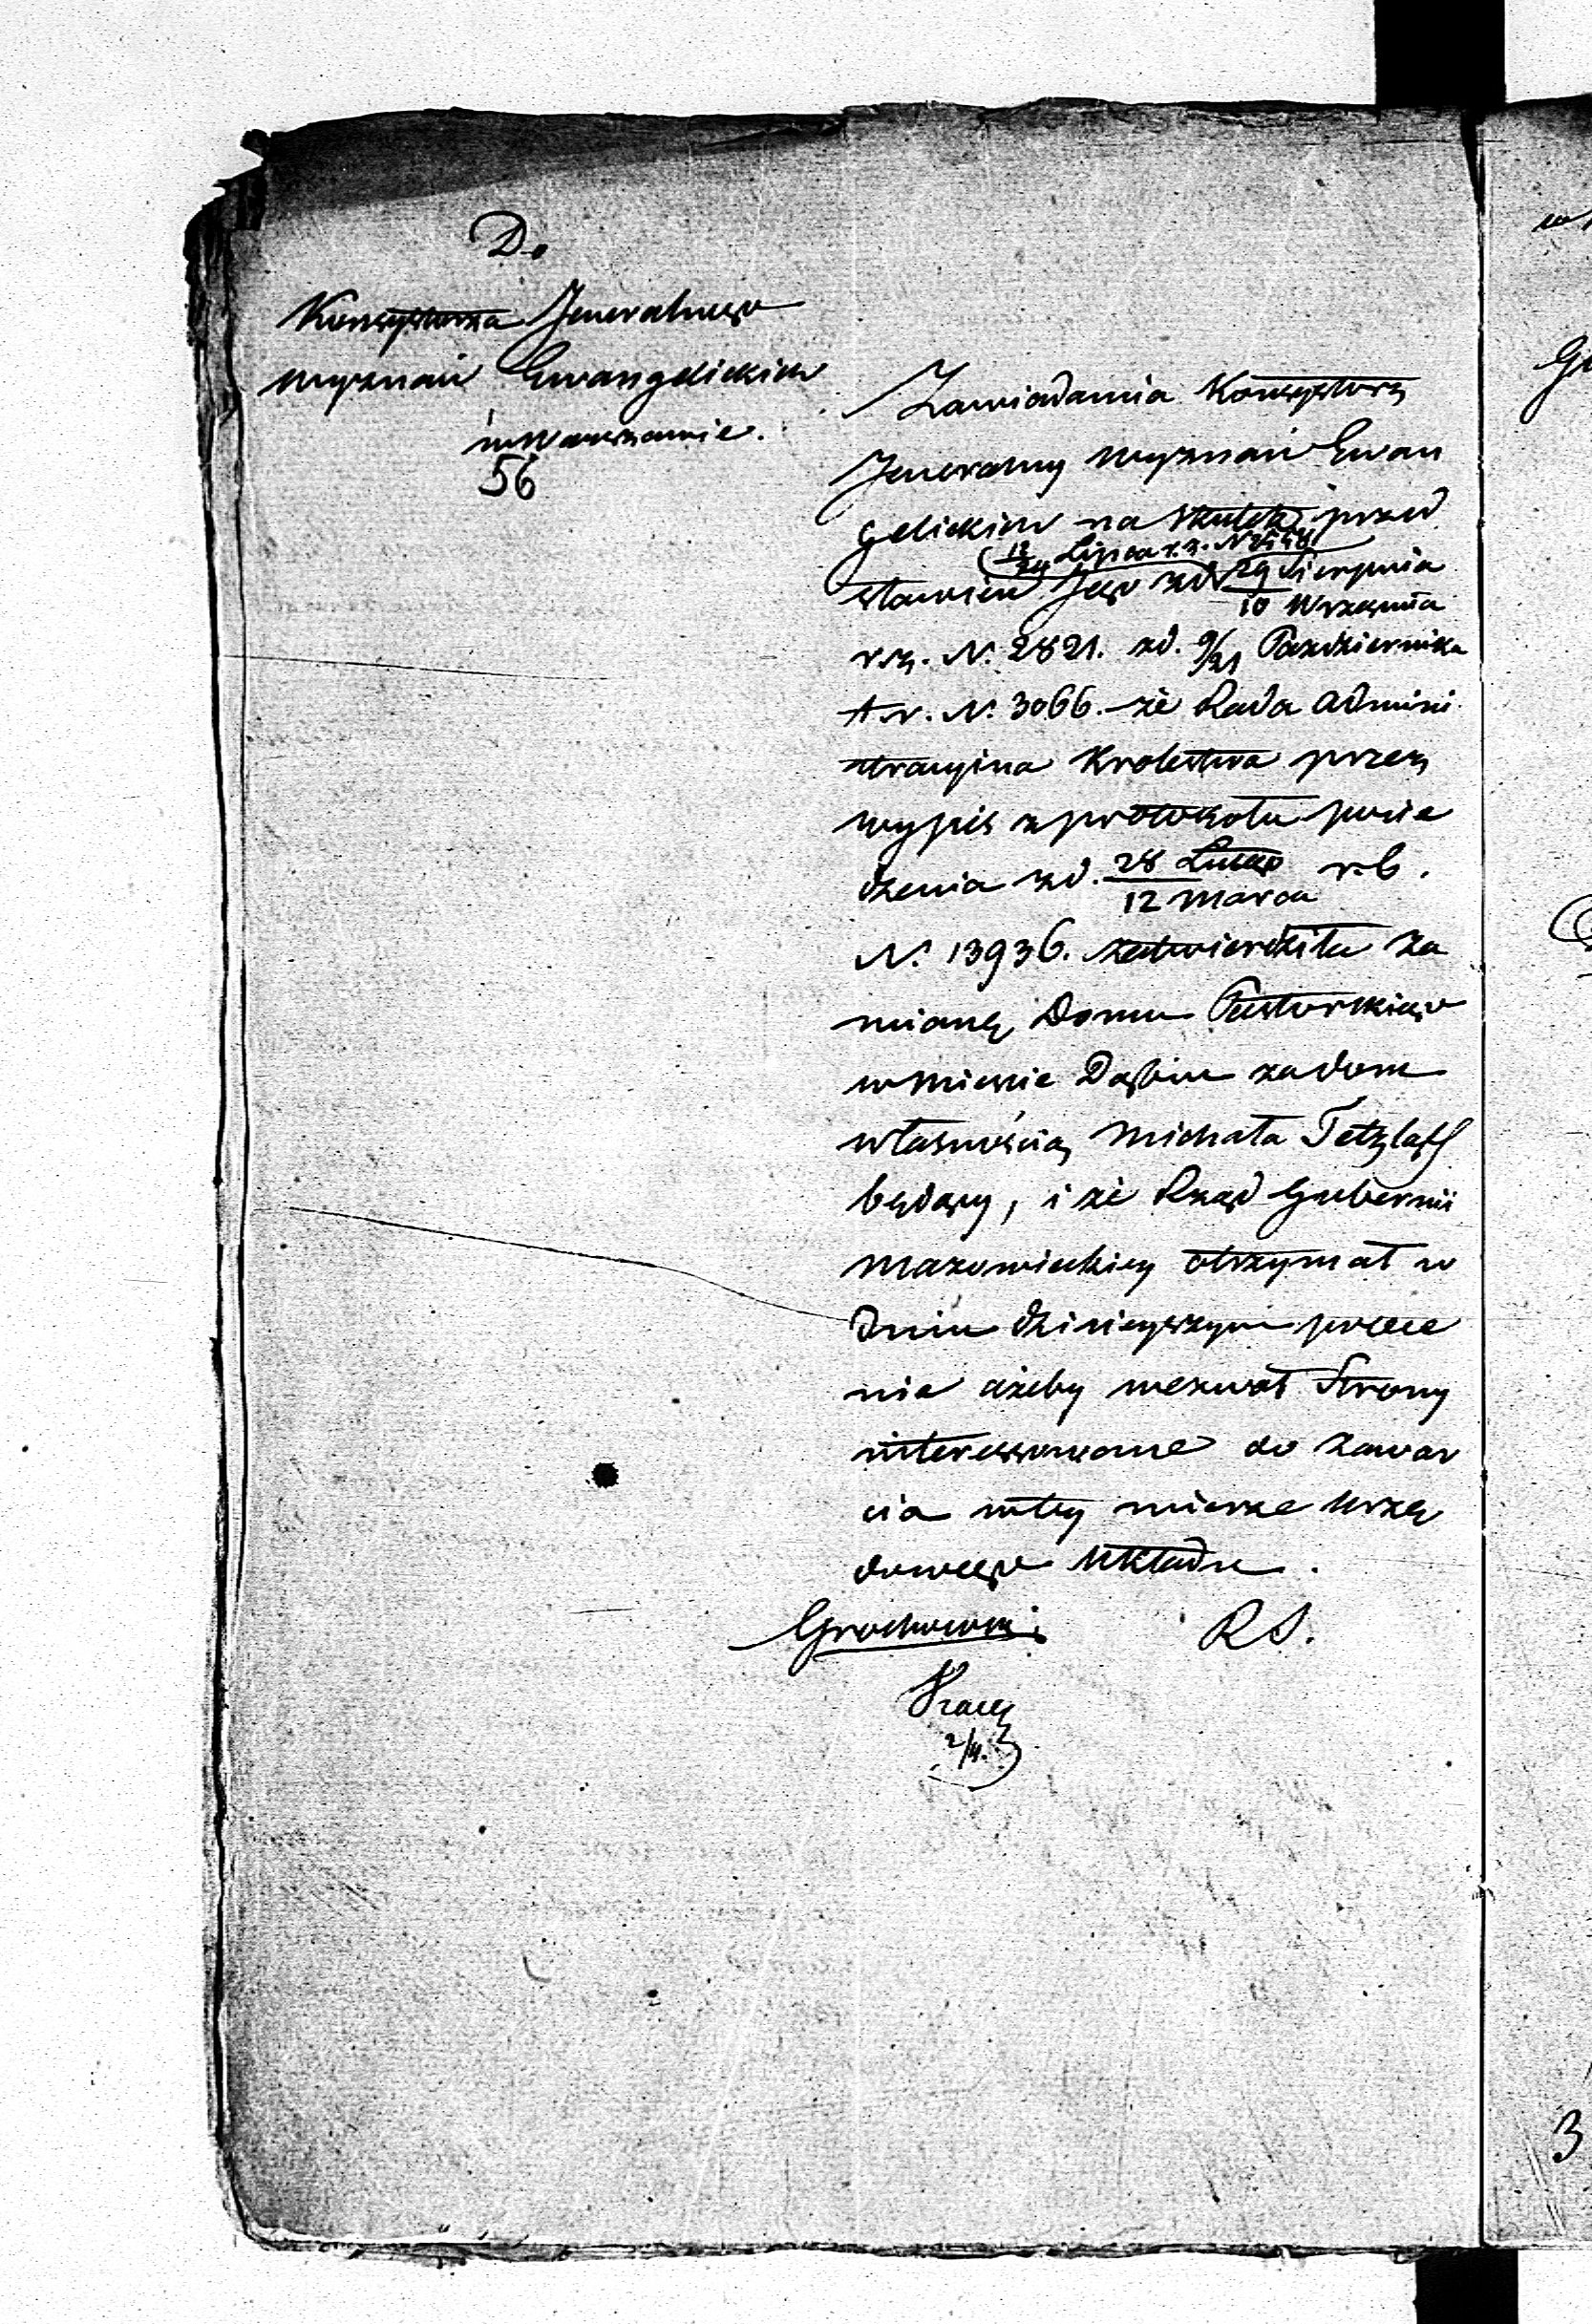 Do
Konsystorza Jeneralnego
wyznań Ewangelickich
w Warszawie.
56
Zawiadamia Konsystorz
Jeneralny wyznań Ewan
gelickich na skutek przed
12/24 Lipca r.z. N.
stawień Jego z d. 29 Sierpnia
10 Września
r.z. N. 2821. z d. 9/21 Października
t.r. N. 3066. że Rada Admini
stracyjna Królestwa przez
wypis z protokołu posie
dzenia z d. 28 Lutego r.b.
12 Marca
N. 13936. zatwierdziła za
mianę Domu Pastorskiego
w mieście Dąbiu za dom
własnością Michała Tetzlaff
będący, i że Rząd Gubernii
Mazowieckiey otrzymał w
Dniu dzisieyszym polece
nie ażeby wezwał Strony
interessowane do zawar
cia w tey mierze urzę
dowego układu.
Grochowski R S.
2/4.